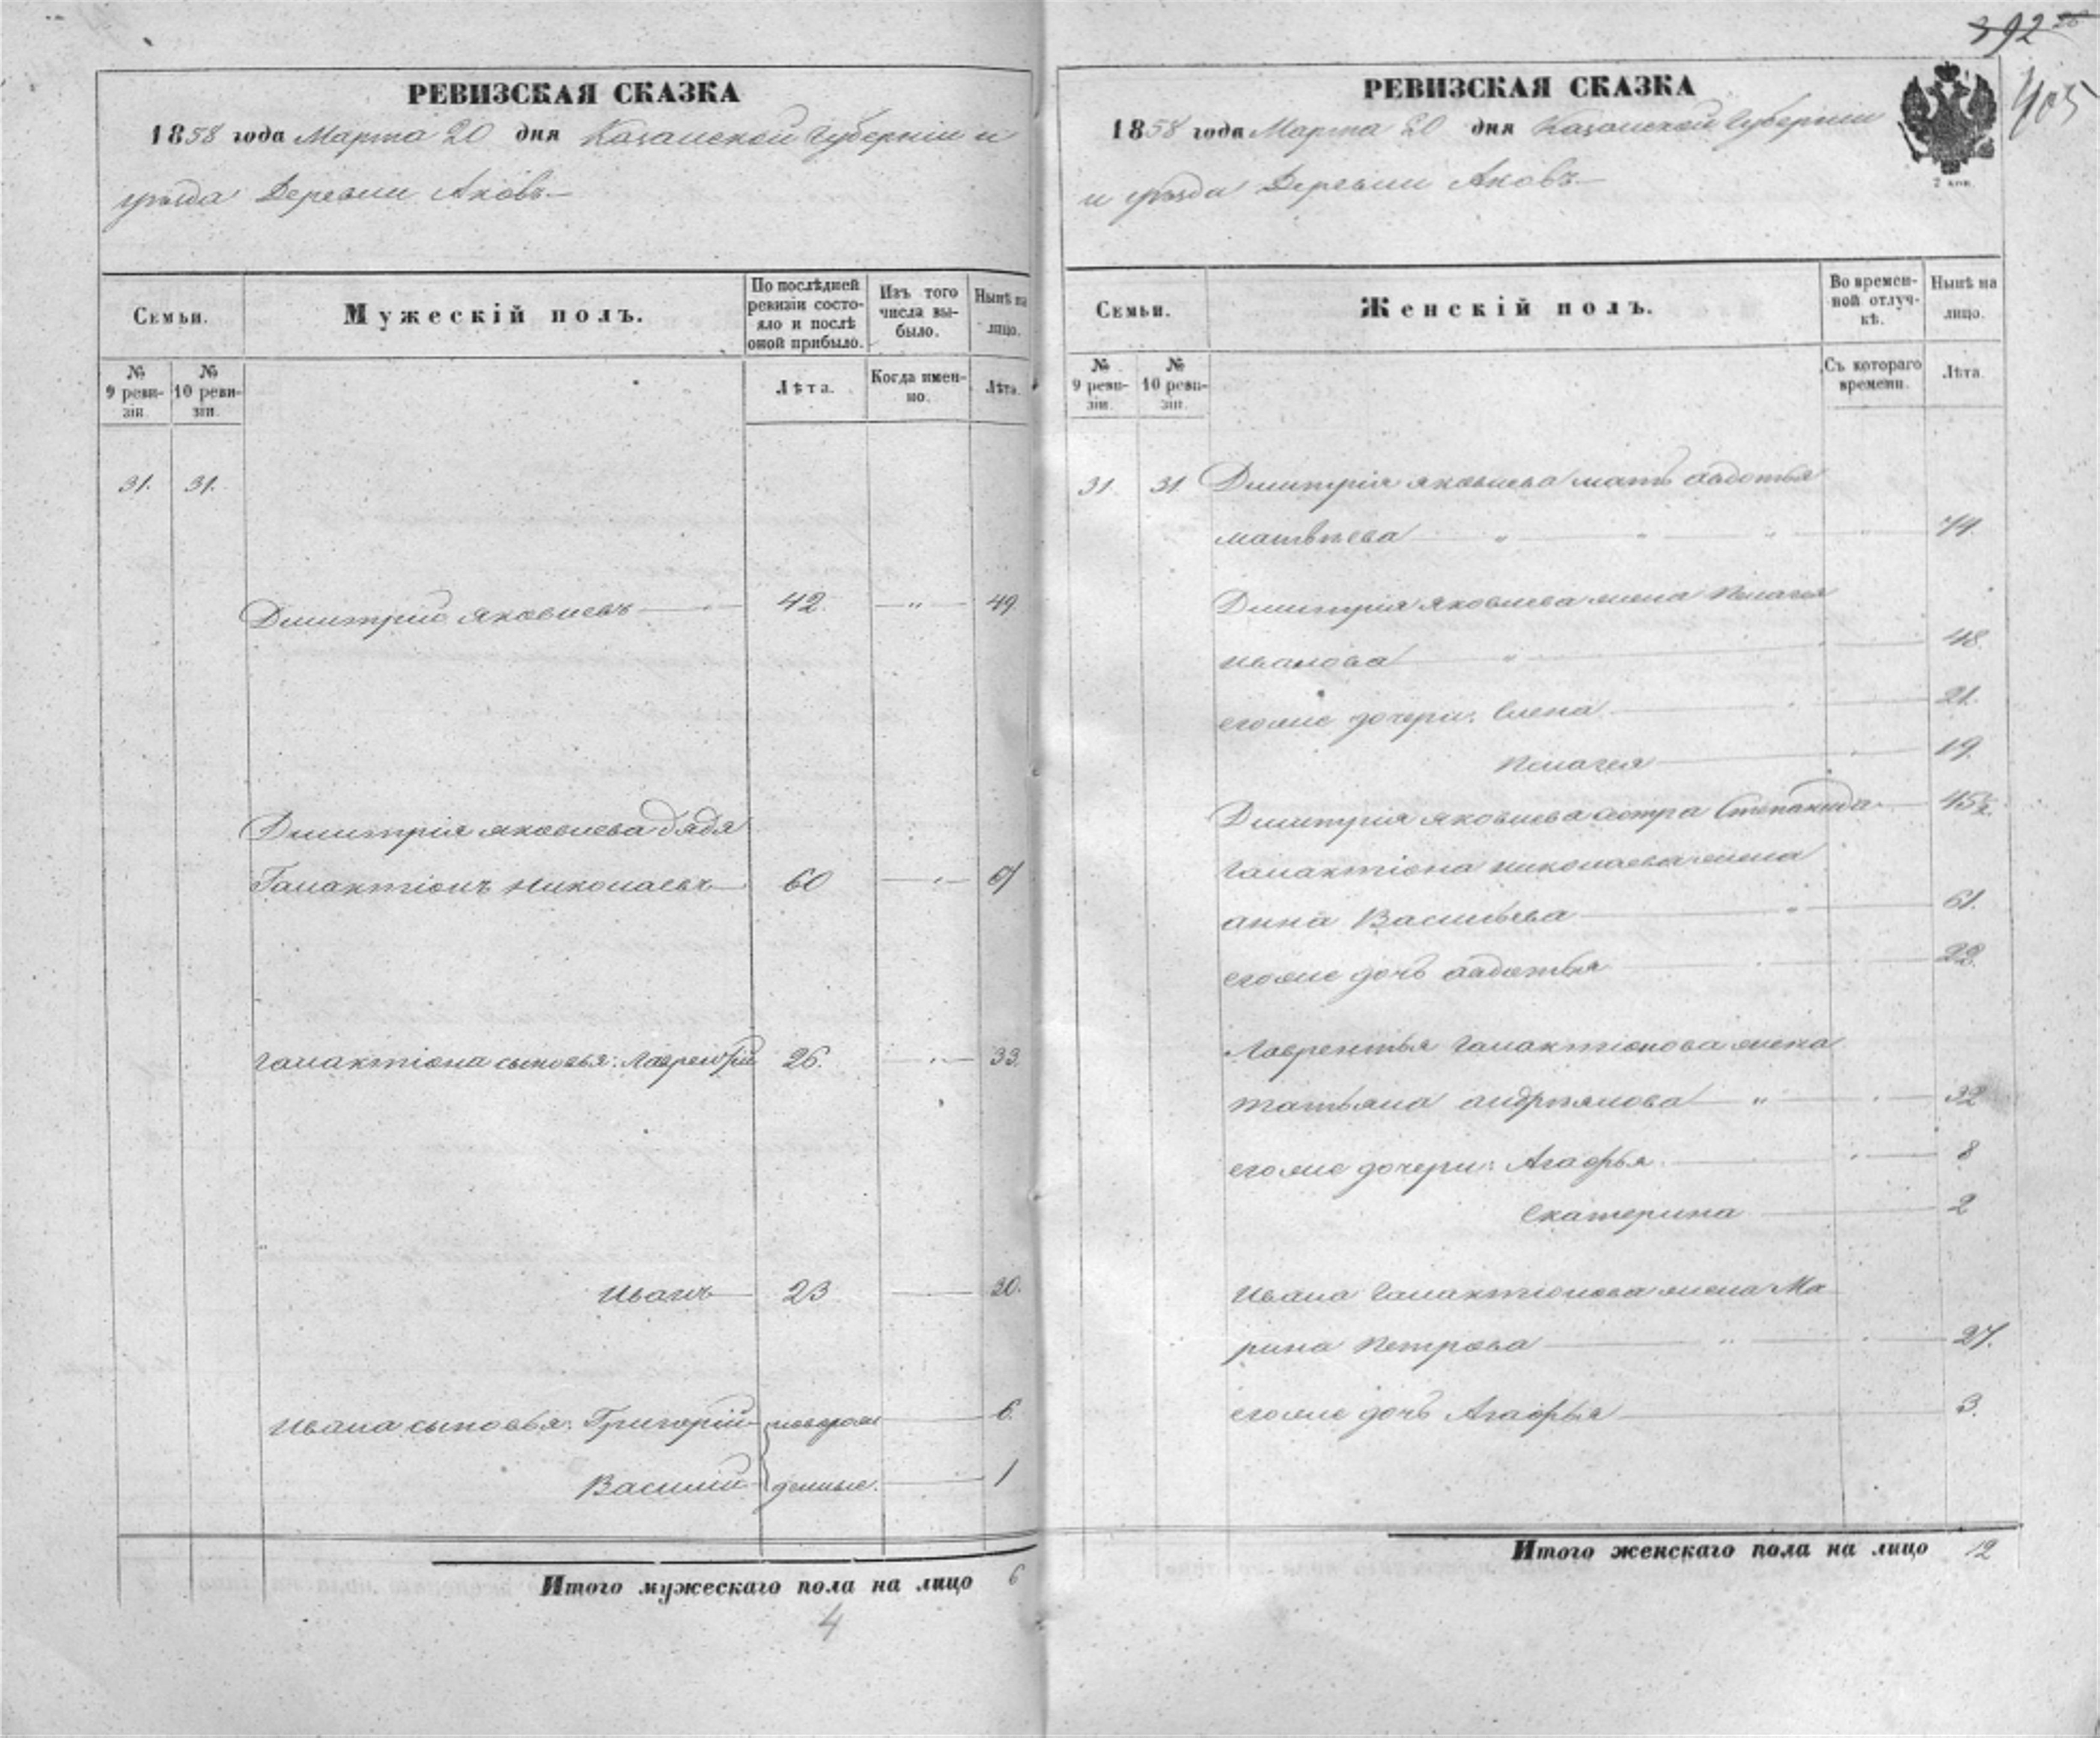 392
405
РЕВИЗСКАЯ СКАЗКА
1858 года Марта 20 дня Казанской Губерніи и
уѣзда Деревни Аковъ
Семьи.
Мужескій полъ.
По послѣдней ревизіи состояло и послѣ оной прибыло.
Изъ того числа выбыло.
Нынѣ на лицо.
№ 9 ревизіи.
№ 10 ревизіи.
Лѣта.
Когда именно.
Лѣта.
31. 31.
Димитрій Яковлевъ 42. — " — 49.
Димитрія Яковлева дядя
Галактіонъ Николаевъ 60 67
Галактіона сыновья: Лаврентій 26. 33.
Иванъ 23 30.
Ивана сыновья: Григорій новорож 6.
Василій денные. 1
Итого мужескаго пола на лицо 6
4
РЕВИЗСКАЯ СКАЗКА
1858 года Марта 20 дня Казанской Губерніи
и уѣзда Деревни Аковъ
2 коп.
Семьи.
Женскій полъ.
Во временной отлучкѣ.
Нынѣ на лицо.
№ 9 ревизіи.
№ 10 ревизіи.
Съ котораго времени.
Лѣта.
31. 31. Димитрія Яковлева мать Авдотья
Матвѣева " " " 74.
Димитрія Яковлева жена Пелагея
Иванова " 48.
егоже дочери: Елена 21.
Пелагея 19.
Димитрія Яковлева сестра Степанида 45½.
Галактіона Николаева жена
Анна Васильева 61.
егоже дочь Авдотья 22.
Лаврентья Галактіонова жена
Татьяна Андріянова " 32
егоже дочери: Агафья 8
Екатерина 2
Ивана Галактіонова жена Ма
рина Петрова " 27.
егоже дочь Агафья 3.
Итого женскаго пола на лицо 12